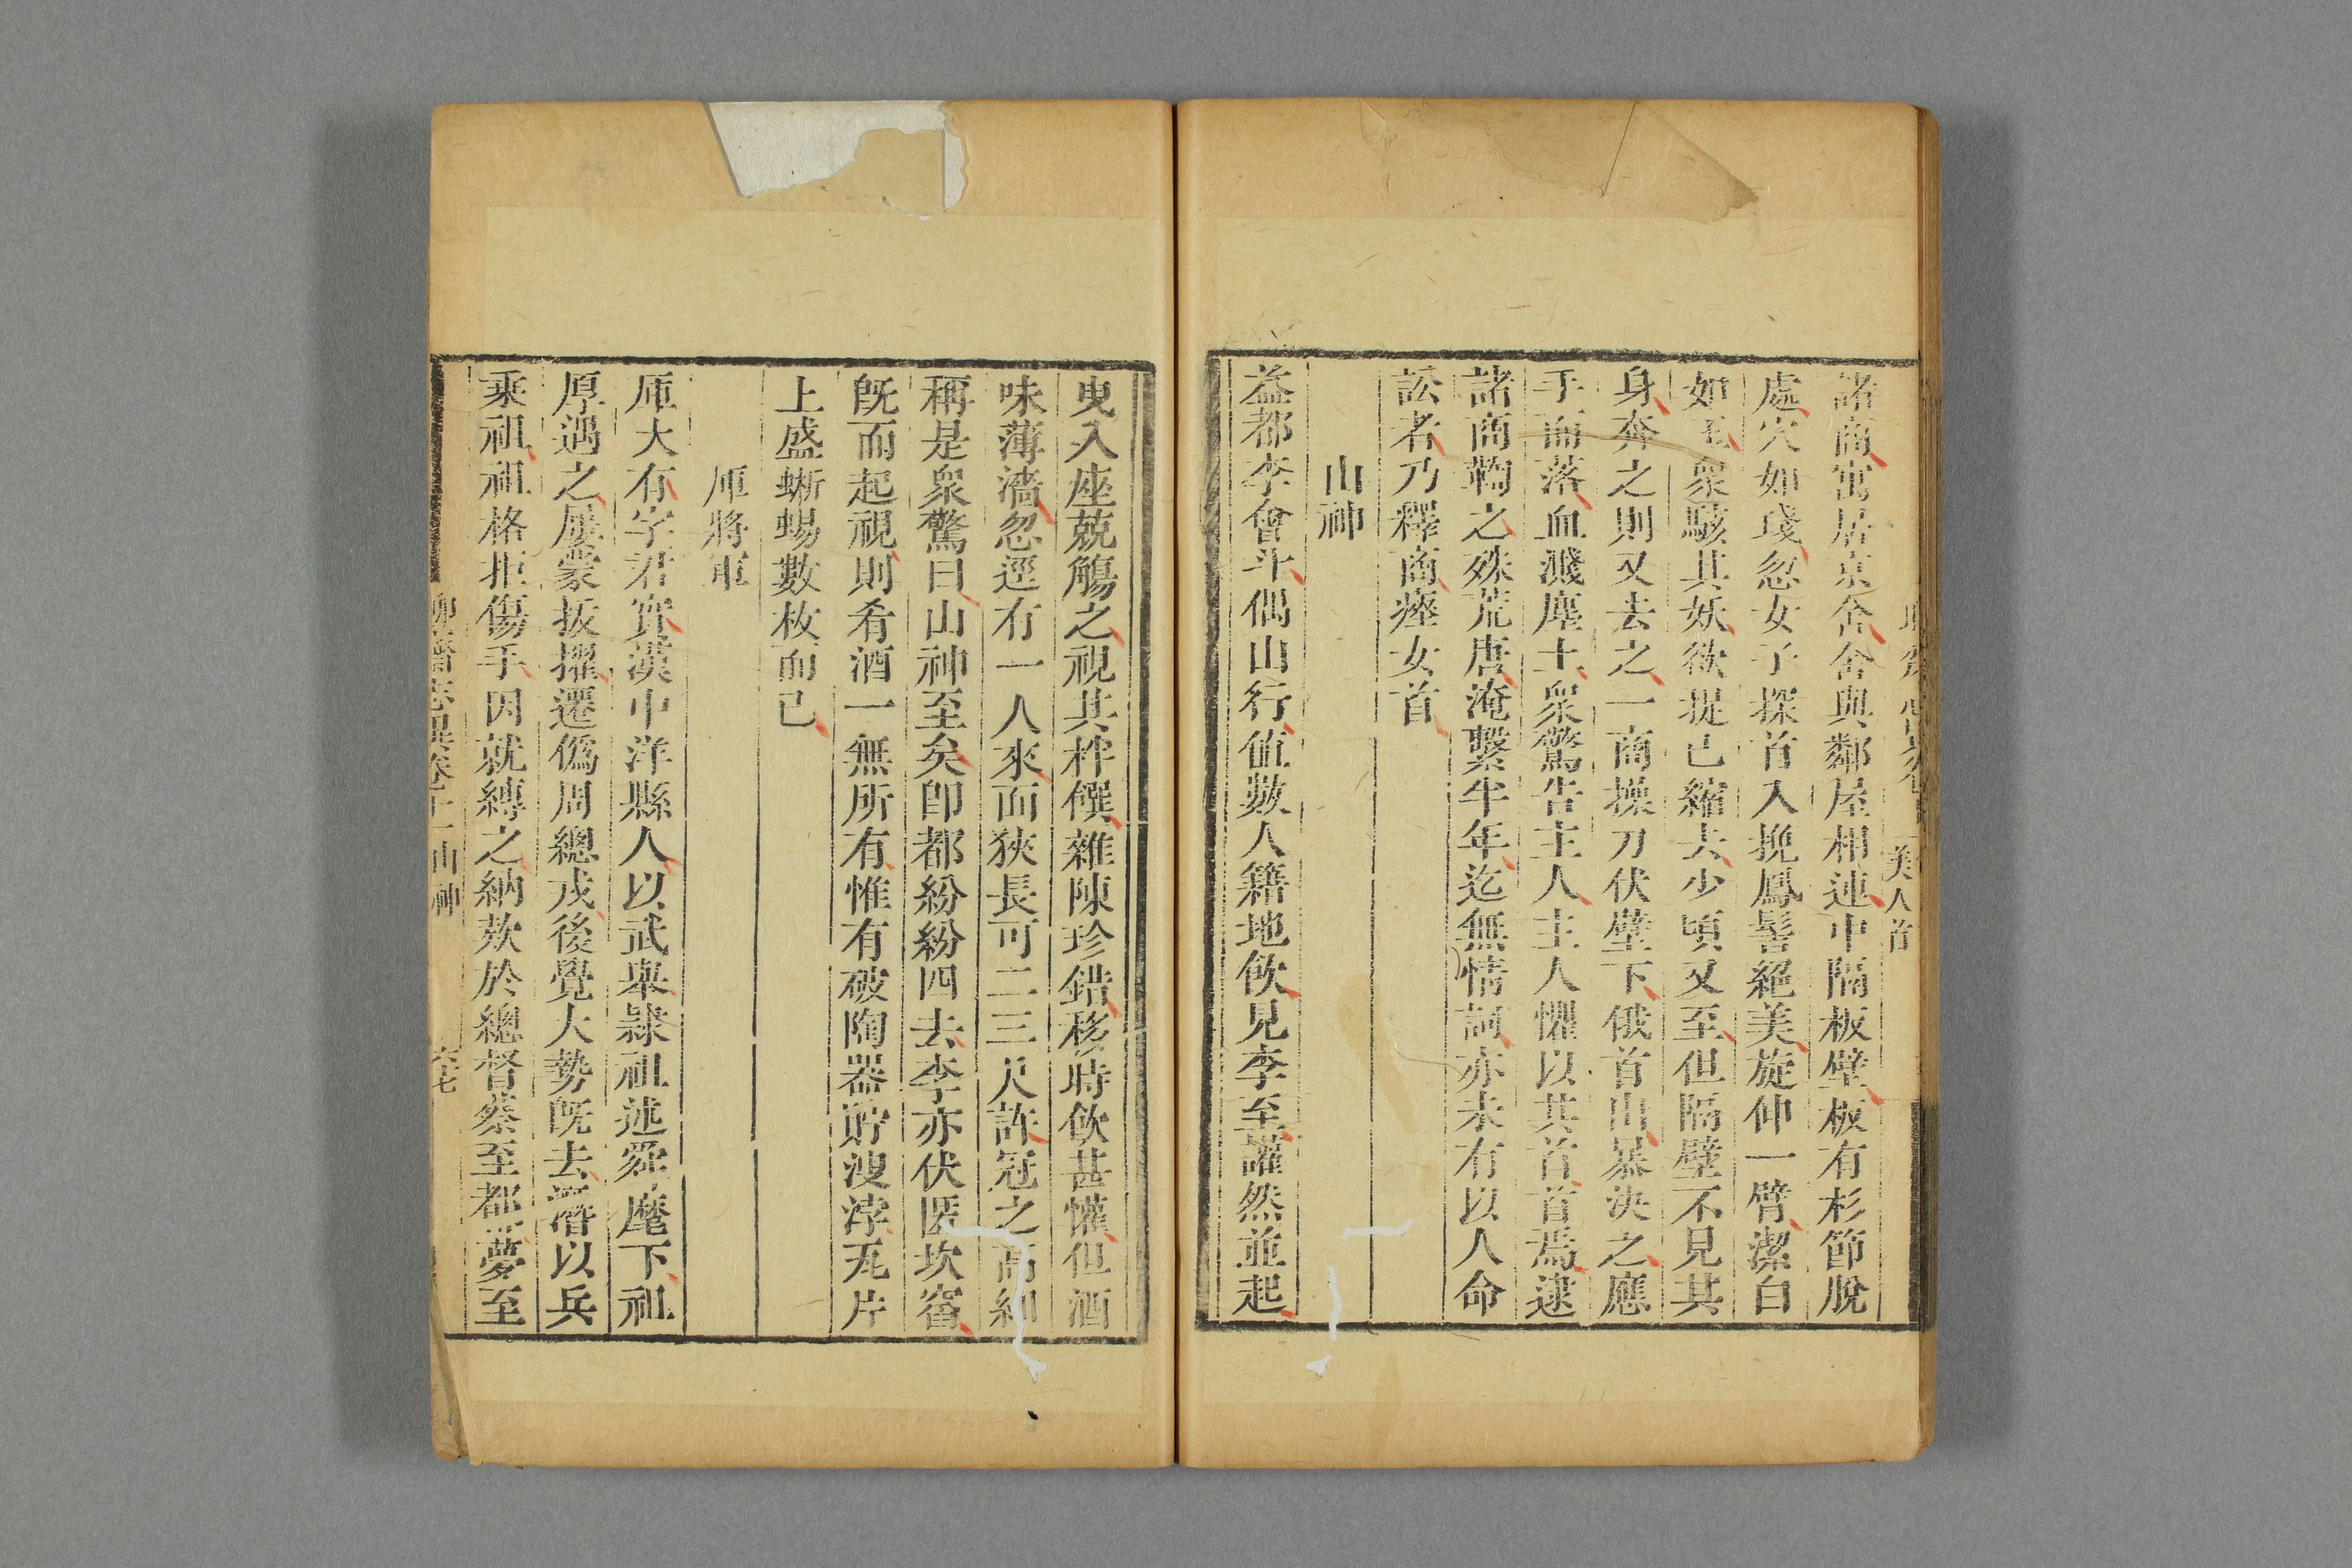 美人首
諸商寓居京舍舍與鄰屋相連中隔板壁板有杉節脫
處穴如琖忽女子探首入挽鳳髻絕美旋伸一臂潔白
如玉衆駭其妖欲捉已縮去少頃又至但隔壁不見其
身奔之則又去之一商操刀伏壁下俄首出暴決之應
手而落血濺塵土衆驚告主人主人懼以其首首焉逮
諸商鞫之殊荒唐淹繫半年迄無情詞亦未有以人命
訟者乃釋商瘞女首
山神
益都李會斗偶山行値數人籍地飲見李至讙然並起
曳入座兢觴之視其柈饌雜陳珍錯移時飲甚懽但酒
味薄濇忽遥有一人來面狹長可二三尺許冠之高細
稱是衆驚曰山神至矣卽都紛紛四去李亦伏匿坎窞
旣而起視則肴酒一無所有惟有破陶器貯溲浡瓦片
上盛蜥蜴數枚而已
厙將軍
厙大有字君實漢中洋縣人以武舉隷祖述舜麾下祖
厚遇之屢蒙拔擢遷僞周總戎後覺大勢旣去潛以兵
乘祖祖格拒傷手因就縛之納欵於總督蔡至都夢至
聊齋志異卷十一山神
六七